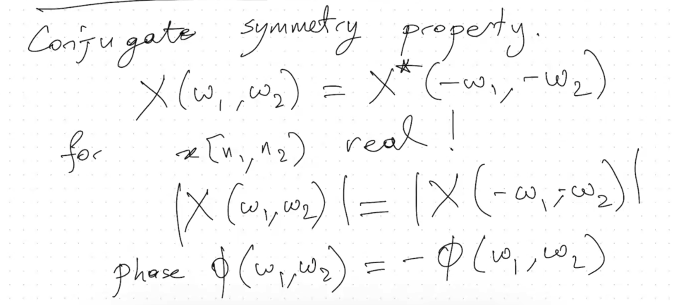 Conjugate symmetry property.
X(ω₁,ω₂) = X*(-ω₁,-ω₂)
for x[n₁,n₂) real!
|X(ω₁,ω₂)| = |X(-ω₁,-ω₂)|
phase ϕ(ω₁,ω₂) = -ϕ(ω₁,ω₂)